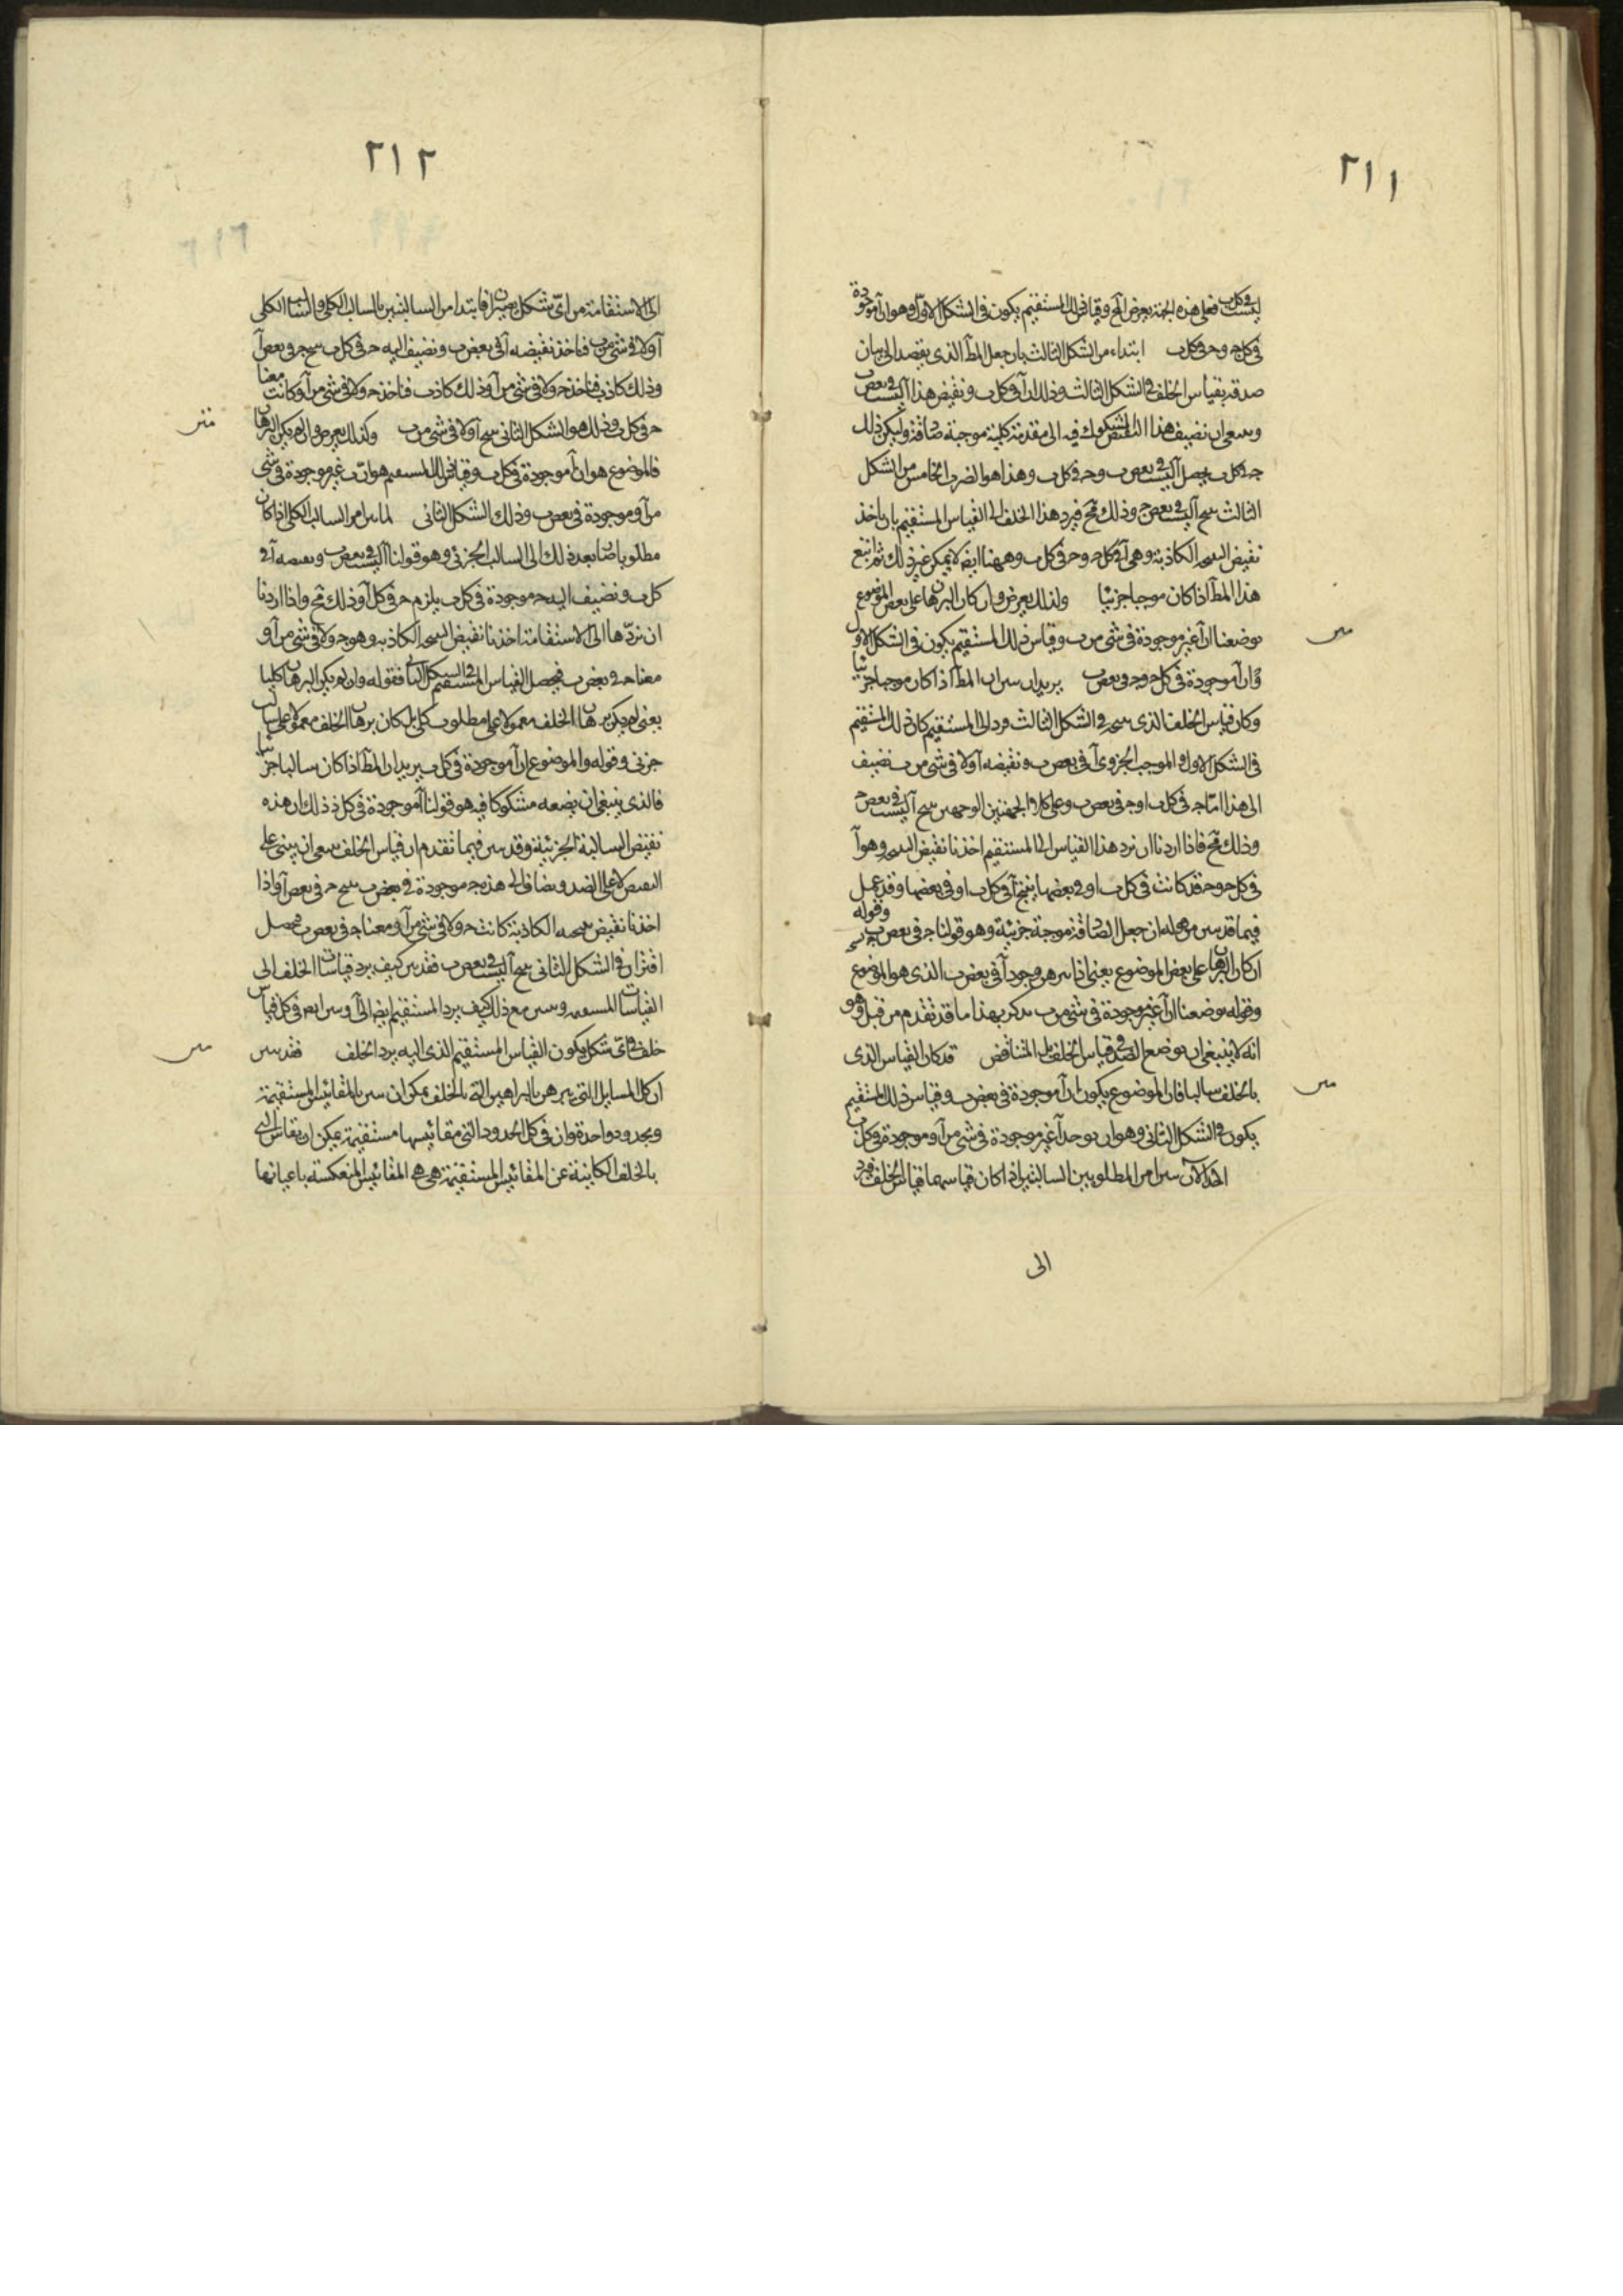 ٢١١
ليست في كل ب فعلى هذه الجهة يعرض المح وقياس ذلك المستقيم يكون في الشكل الاول وهو ان آ موجودة
في كل ج و ج في كل ب ابتداء من الشكل الثالث بان جعل المط الذي يقصد الى بيان
صدقه بقياس الخلف في الشكل الثالث وذلك ان آ في كل ب ونقيض هذا آ ليست في بعض ب
وينبغي ان نضيف هذا النقيض المشكوك فيه الى مقدمة كلية موجبة صادقة وليكن ذلك
ج في كل ب يحصل آ ليست في بعض ب و ج في كل ب وهذا هو الضرب الخامس من الشكل
الثالث ينتج آ ليست في بعض ج وذلك مح فيرد هذا الخلف الى القياس المستقيم بان ياخذ
نقيض النتيجة الكاذبة وهي آ في كل ج و ج في كل ب وههنا ايض لا يمكن غير ذلك ثم اتبع
هذا المط اذا كان موجبا جزئيا وكذلك يعرض وان كان البرهان على بعض الموضوع
بوضعنا ان آ غير موجودة في شي من ب وقياس ذلك المستقيم يكون في الشكل الاول
وان آ موجودة في كل ج و ج في بعض ب يريد ان يبين ان المط اذا كان موجبا جزئيا
وكان قياس الخلف الذي ينتجه في الشكل الثالث ورد الى المستقيم كان ذلك المستقيم
في الشكل الاول والموجب الجزوي آ في بعض ب ونقيضه آ ولا في شي من ب نضيف
الى هذا اما ج في كل ب او ج في بعض ب وعلى كلا الجهتين الوجهين ينتج آ ليست في بعض ج
وذلك مح فاذا اردنا ان نرد هذا القياس الى المستقيم اخذنا نقيض النتيجة وهو آ
في كل ج و ج قد كانت في كل ب او في بعضها ينتج آ في كل ب او في بعضها وقد عمل
فيما قد بين من قبله ان جعل الصادقة موجبة جزئية وهو قولنا ج في بعض ب وقوله
ان كان البرهان على بعض الموضوع يعني اذا برهن وجود آ في بعض ب الذي هو الموضوع
وقوله بوضعنا ان آ غير موجودة في شي من ب يذكر بهذا ما قد تقدم من قبل وهو
انه لا ينبغي ان يوضع الضد في قياس الخلف بل المتناقض قد كان القياس الذي
بالخلف سالبا فان الموضوع يكون ان آ موجودة في بعض ب وقياس ذلك المستقيم
يكون في الشكل الثاني وهو ان يوجد آ غير موجودة في شي من آ وموجودة في كل ب
اخذ الآن يبين امر المطلوبين السالبين اذا كان قياسهما قياس الخلف فرد
الى
٢١٢
الى الاستقامة من اي شكل يصيران فابتدا من السالبتين بالسالب الكلي والسالب الكلي
آ ولا في شي من ب فناخذ نقيضه آ في بعض ب ونضيف اليه ج في كل ب ينتج ج في بعض آ
وذلك كاذب فناخذ ج ولا في شي من آ وذلك كاذب فناخذ ج ولا في شي من آ وكانت معنا
ج في كل ب وذلك هو الشكل الثاني ينتج آ ولا في شي من ب وكذلك يعرض وان لم يكن البرهان
فالموضوع هو ان آ موجودة في كل ب وقياس ذلك المستقيم هو ان ج غير موجودة في شي
من آ وموجودة في بعض ب وذلك الشكل الثاني لما بين امر السالب الكلي اذا كان
مطلوبا صار بعد ذلك الى السالب الجزئي وهو قولنا آ ليست في بعض ب ونقيضه آ في
كل ب ونضيف اليه ج موجودة في كل ب يلزم ج في كل آ وذلك مح واذا اردنا
ان نردها الى الاستقامة اخذنا نقيض النتيجة الكاذبة وهو ج ولا في شي من آ و
معنا ج في بعض ب فيحصل القياس المستقيم في الشكل الثاني فقوله وان لم يكن البرهان كليا
يعني لم يكن برهان الخلف معمولا على مطلوب كلي بل كان برهان الخلف معمولا على سالب
جزئي وقوله والموضوع ان آ موجودة في كل ب يريد ان المط اذا كان سالبا جزئيا
فالذي ينبغي ان يضعه مشكوكا فيه هو قولنا آ موجودة في كل ذ ذلك ان هذه
نقيض السالبة الجزئية وقد بين فيما تقدم ان قياس الخلف ينبغي ان يبنى على
النقيض لا على الضد ويضاف الى هذه ج موجودة في بعض ب ينتج ج في بعض آ واذا
اخذنا نقيض نتيجته الكاذبة كانت ج ولا في شي من آ ومعنا ج في بعض ب فيحصل
اقتران في الشكل الثاني ينتج آ ليست في بعض ب فقد بين كيف يرد قياسات الخلف الى
القياسات المستقيمة ويبين مع ذلك كيف يرد المستقيم ايض الى آ وبين ايض في كل قياس
خلف في اي شكل يكون القياس المستقيم الذي اليه يرد الخلف فقد بين
ان كل المسايل التي يبرهن بالبراهين التي بالخلف يمكن ان يبين بالمقائيس المستقيمة
وبحدود واحدة وان في كل الحدود التي مقائيسها مستقيمة يمكن ان يقاس التي
بالخلف الكاينة عن المقائيس المستقيمة هي هي المقائيس المنعكسة باعيانها